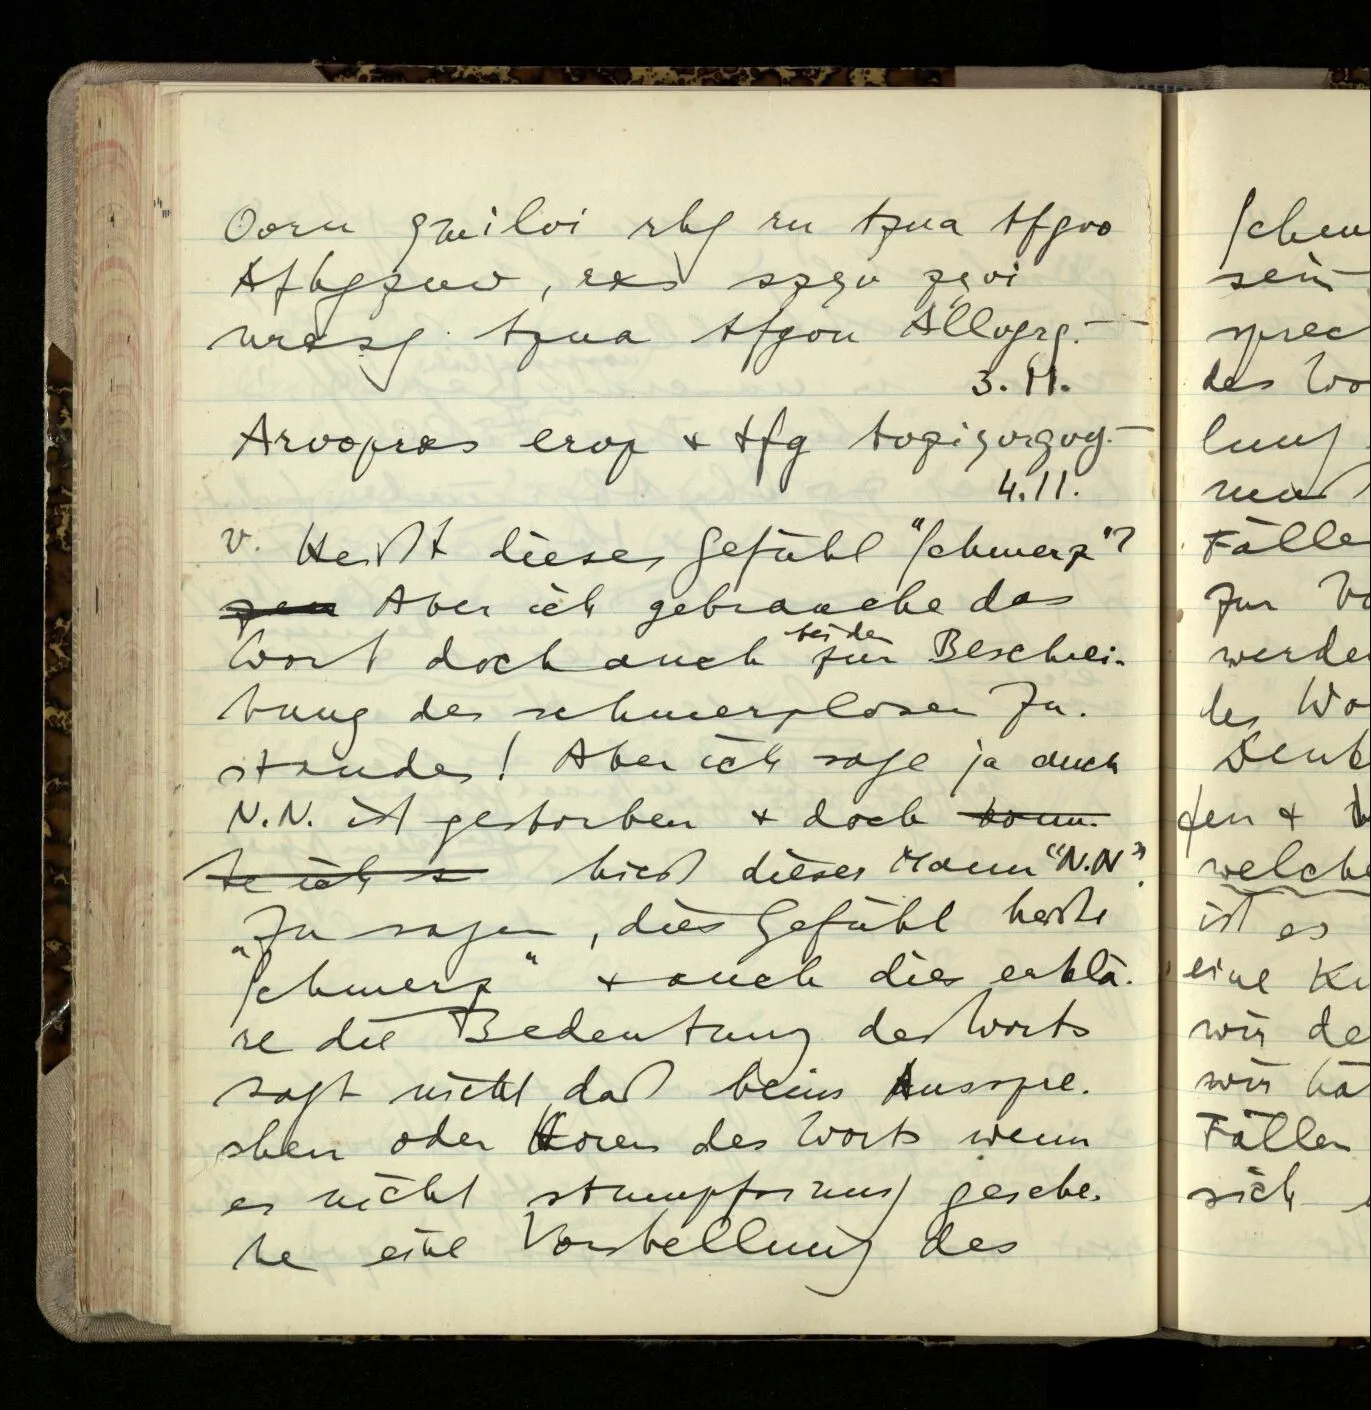 Ovrn qmilvi rhg rn tzna tfgvo
Afhgznw, rxs szyv zyvi
nrxsg tzna tfgvn Allvgrg. —
3.11.
Arvoprxs ervp + tfg tvziyvrgvg. —
4.11.
v. Heißt dieses Gefühl "Schmerz"?
zen Aber ich gebrauche das
Wort doch auch bei der zur Beschrei-
bung des schmerzlosen Zu-
standes! Aber ich sage ja auch
N.N. ist gestorben + doch konn-
te ich s hieß dieser Mann "N.N".
„Zu sagen, dies Gefühl heiße
Schmerz" + auch dies erklä-
re die Bedeutung des Worts
sagt nicht daß beim Ausspre-
chen oder Hören des Worts wenn
es nicht stumpfsinnig gesche-
he eine Vorstellung des
Schm
sein
sprec
des Wo
lung
muß
Fälle
zur Vo
werde
des Wo
Denk
fen +
welche
ist es
eine Kr
wir de
wir hä
Fällen
sich